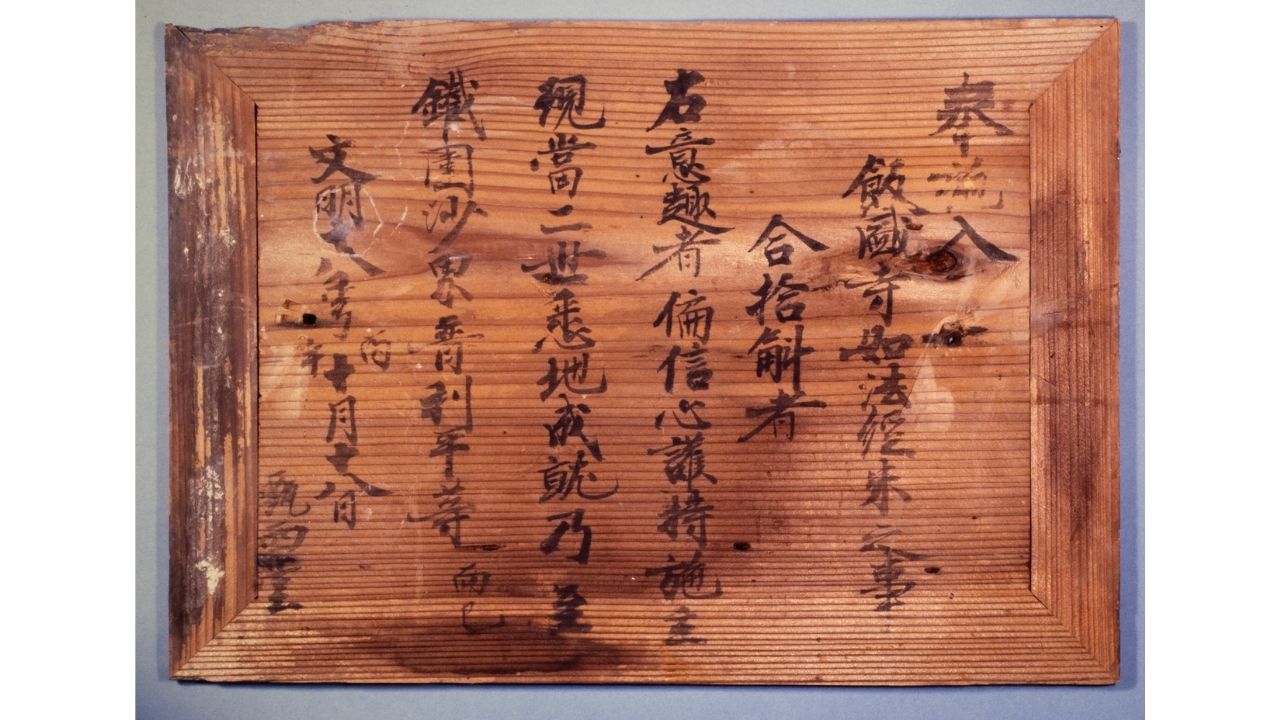 奉施入
飯國寺如法經米之事
合拾斛者
右意趣者偏信心護持施主
現當二世悉地成就乃至
鐵圍沙界普利平等而已
文明十八年丙午十月十八日